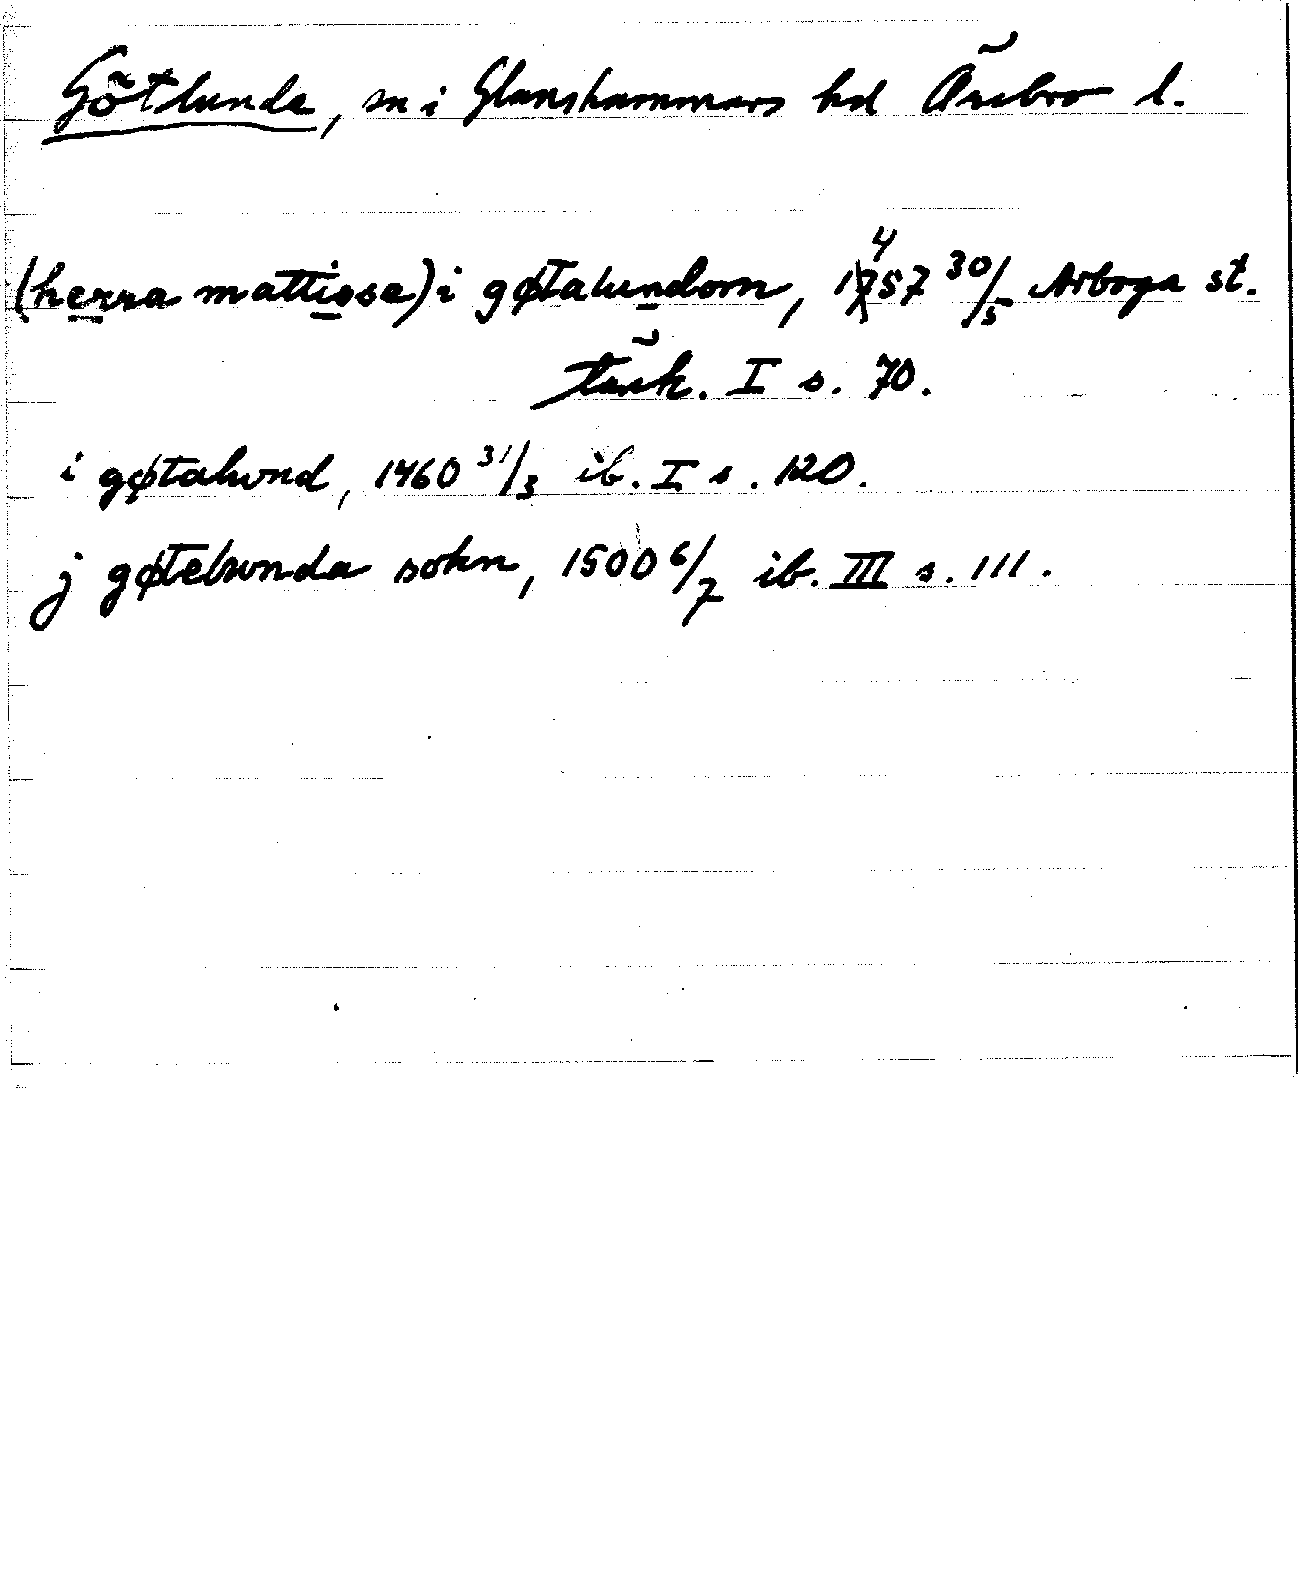 Götlunda, sn i Glanshammars hd Örebro l.
(herra mattiosa) i gøtalundom, 1457 30/5 Arboga st.
tänk. I s. 70.
i gøtalund, 1460 31/3 ib. I s. 120.
j gøtelunda sokn, 1500 6/7 ib. III s. 111.